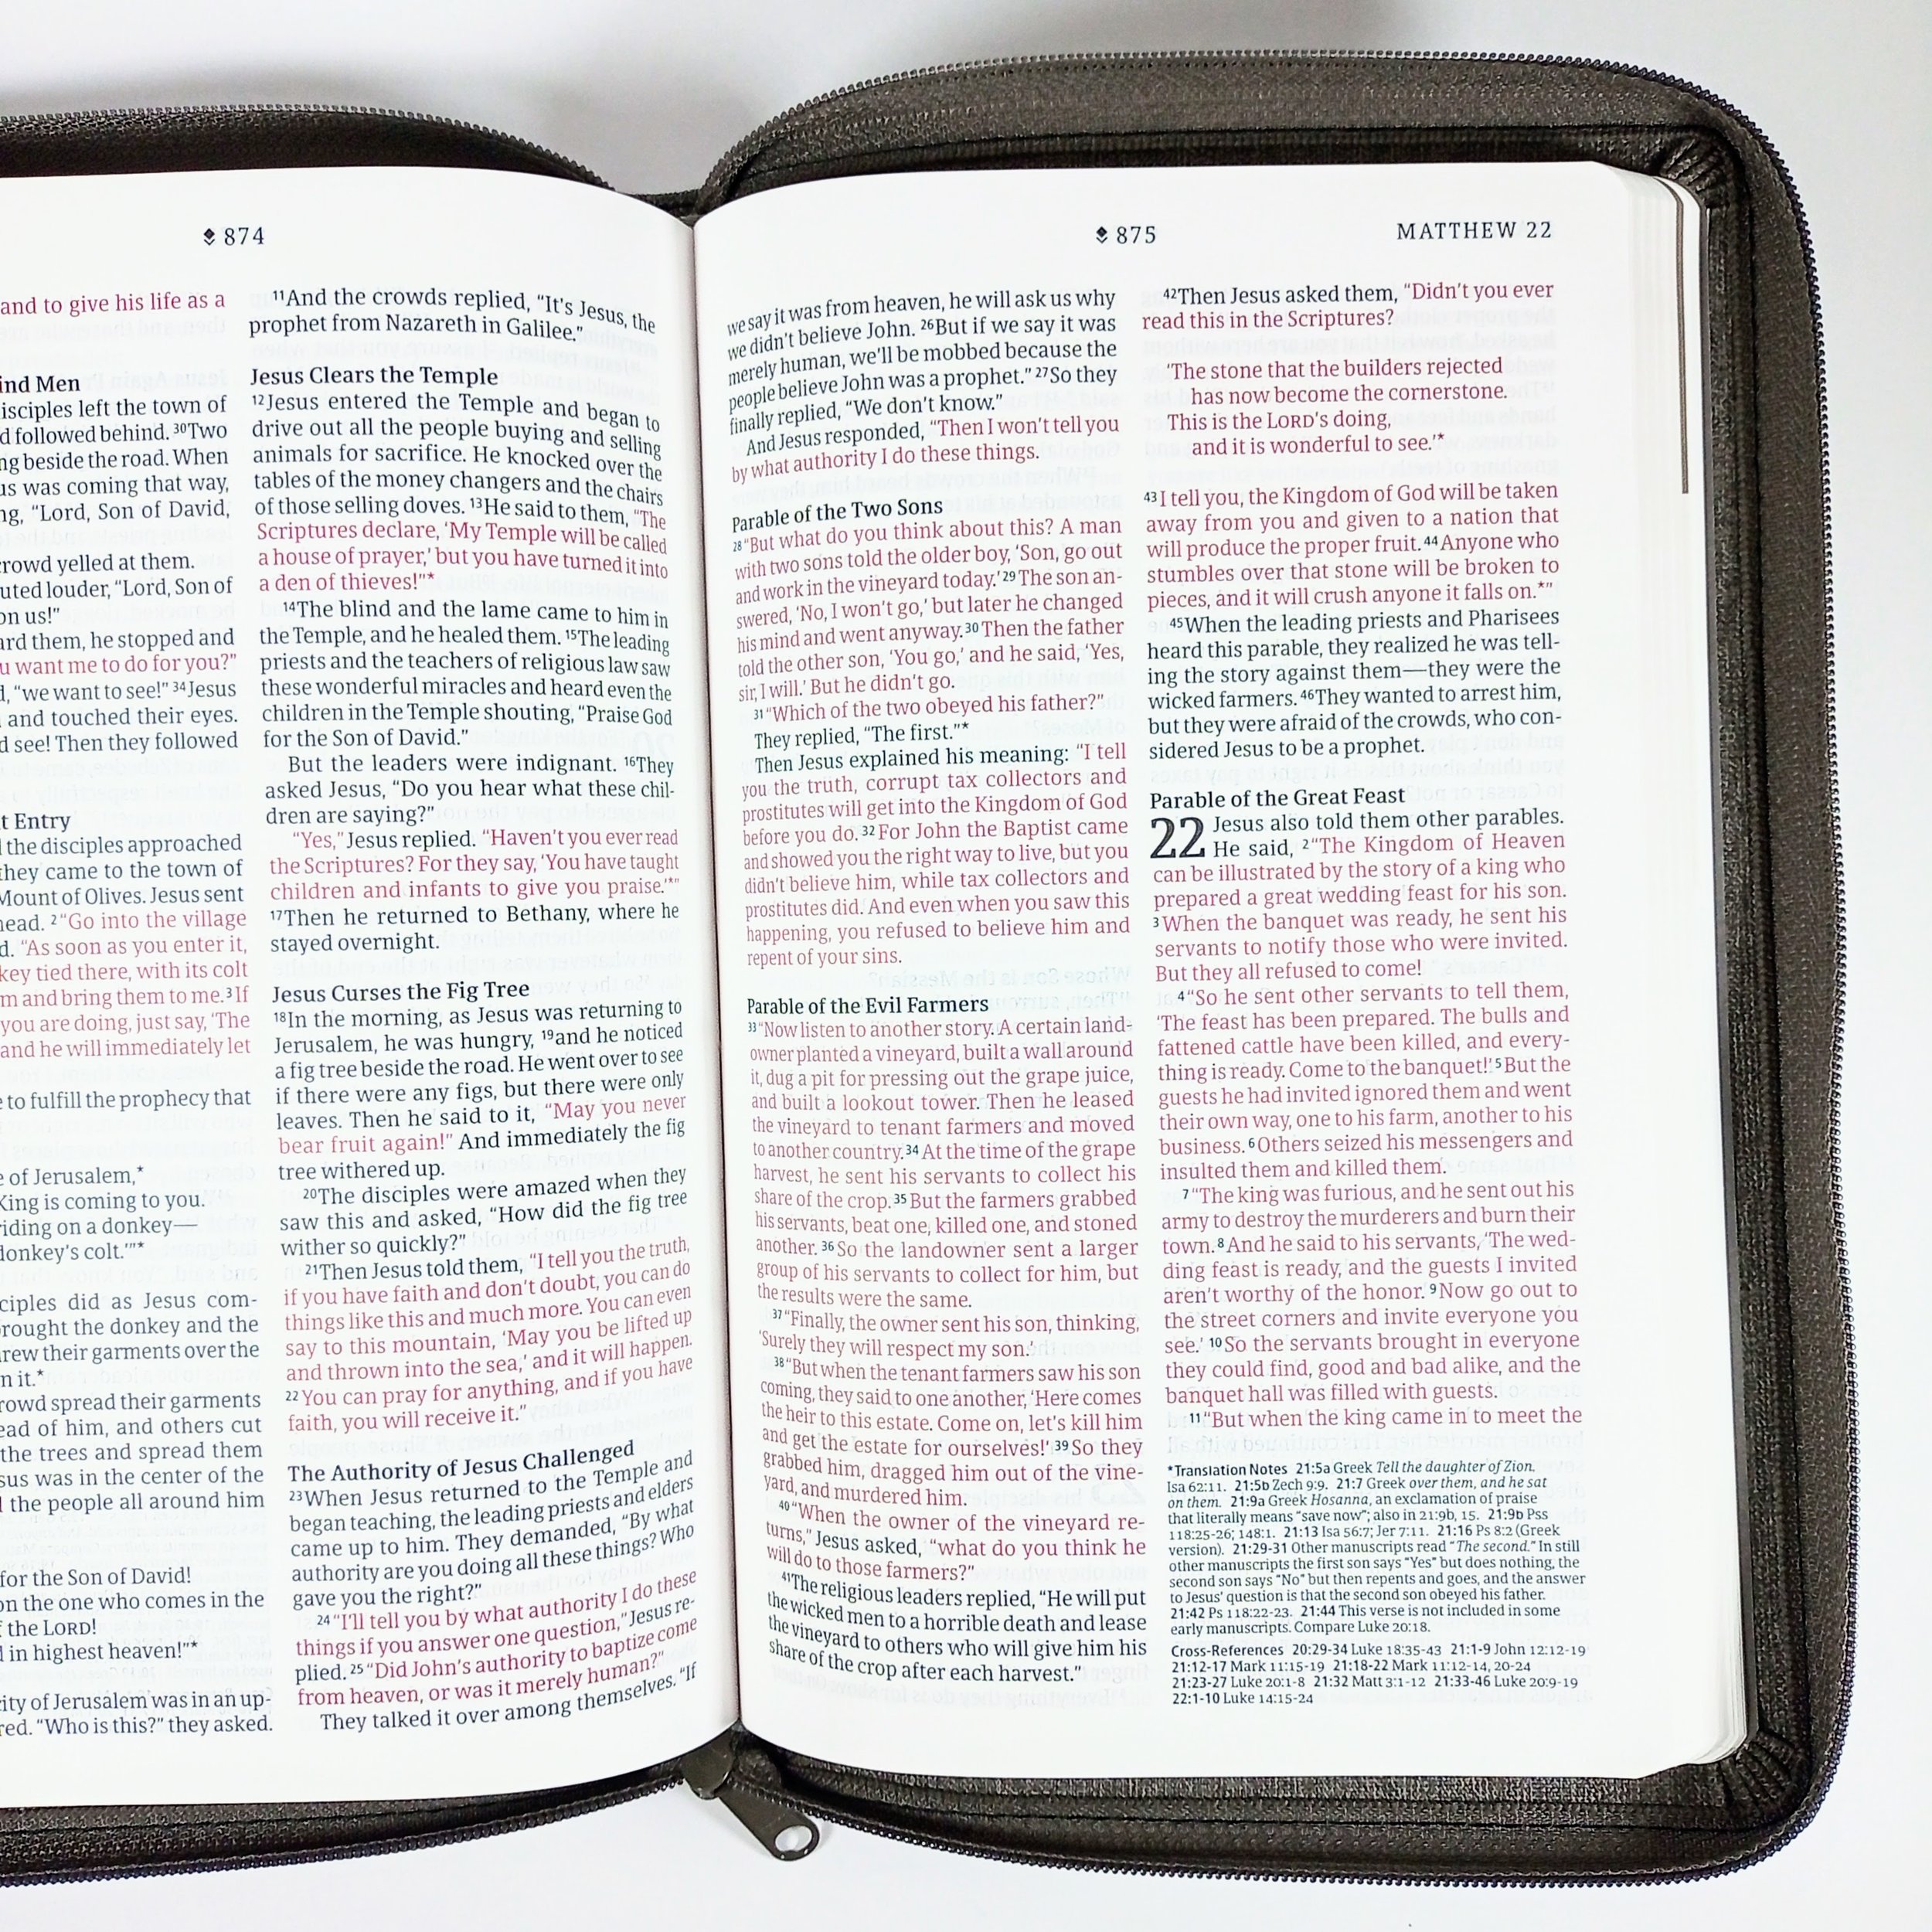 874
and to give his life as a
ind Men
isciples left the town of
d followed behind. 30Two
ng beside the road. When
us was coming that way,
ng, “Lord, Son of David,
crowd yelled at them.
uted louder, “Lord, Son of
on us!”
ard them, he stopped and
u want me to do for you?”
d, “we want to see!” 34Jesus
and touched their eyes.
d see! Then they followed
t Entry
the disciples approached
they came to the town of
Mount of Olives. Jesus sent
head. 2“Go into the village
d. “As soon as you enter it,
key tied there, with its colt
m and bring them to me. 3If
you are doing, just say, ‘The
and he will immediately let
e to fulfill the prophecy that
e of Jerusalem,*
King is coming to you.
riding on a donkey—
donkey’s colt.’”*
ciples did as Jesus com-
rought the donkey and the
rew their garments over the
n it.*
rowd spread their garments
ead of him, and others cut
the trees and spread them
sus was in the center of the
the people all around him
for the Son of David!
on the one who comes in the
f the LORD!
in highest heaven!”*
ity of Jerusalem was in an up-
red. “Who is this?” they asked.
11And the crowds replied, “It’s Jesus, the
prophet from Nazareth in Galilee.”
Jesus Clears the Temple
12Jesus entered the Temple and began to
drive out all the people buying and selling
animals for sacrifice. He knocked over the
tables of the money changers and the chairs
of those selling doves. 13He said to them, “The
Scriptures declare, ‘My Temple will be called
a house of prayer,’ but you have turned it into
a den of thieves!”*
14The blind and the lame came to him in
the Temple, and he healed them. 15The leading
priests and the teachers of religious law saw
these wonderful miracles and heard even the
children in the Temple shouting, “Praise God
for the Son of David.”
But the leaders were indignant. 16They
asked Jesus, “Do you hear what these chil-
dren are saying?”
“Yes,” Jesus replied. “Haven’t you ever read
the Scriptures? For they say, ‘You have taught
children and infants to give you praise.’*”
17Then he returned to Bethany, where he
stayed overnight.
Jesus Curses the Fig Tree
18In the morning, as Jesus was returning to
Jerusalem, he was hungry, 19and he noticed
a fig tree beside the road. He went over to see
if there were any figs, but there were only
leaves. Then he said to it, “May you never
bear fruit again!” And immediately the fig
tree withered up.
20The disciples were amazed when they
saw this and asked, “How did the fig tree
wither so quickly?”
21Then Jesus told them, “I tell you the truth,
if you have faith and don’t doubt, you can do
things like this and much more. You can even
say to this mountain, ‘May you be lifted up
and thrown into the sea,’ and it will happen.
22You can pray for anything, and if you have
faith, you will receive it.”
The Authority of Jesus Challenged
23When Jesus returned to the Temple and
began teaching, the leading priests and elders
came up to him. They demanded, “By what
authority are you doing all these things? Who
gave you the right?”
24“I’ll tell you by what authority I do these
things if you answer one question,” Jesus re-
plied. 25“Did John’s authority to baptize come
from heaven, or was it merely human?”
They talked it over among themselves. “If
875
MATTHEW 22
we say it was from heaven, he will ask us why
we didn’t believe John. 26But if we say it was
merely human, we’ll be mobbed because the
people believe John was a prophet.” 27So they
finally replied, “We don’t know.”
And Jesus responded, “Then I won’t tell you
by what authority I do these things.
Parable of the Two Sons
28“But what do you think about this? A man
with two sons told the older boy, ‘Son, go out
and work in the vineyard today.’ 29The son an-
swered, ‘No, I won’t go,’ but later he changed
his mind and went anyway. 30Then the father
told the other son, ‘You go,’ and he said, ‘Yes,
sir, I will.’ But he didn’t go.
31“Which of the two obeyed his father?”
They replied, “The first.”*
Then Jesus explained his meaning: “I tell
you the truth, corrupt tax collectors and
prostitutes will get into the Kingdom of God
before you do. 32For John the Baptist came
and showed you the right way to live, but you
didn’t believe him, while tax collectors and
prostitutes did. And even when you saw this
happening, you refused to believe him and
repent of your sins.
Parable of the Evil Farmers
33“Now listen to another story. A certain land-
owner planted a vineyard, built a wall around
it, dug a pit for pressing out the grape juice,
and built a lookout tower. Then he leased
the vineyard to tenant farmers and moved
to another country. 34At the time of the grape
harvest, he sent his servants to collect his
share of the crop. 35But the farmers grabbed
his servants, beat one, killed one, and stoned
another. 36So the landowner sent a larger
group of his servants to collect for him, but
the results were the same.
37“Finally, the owner sent his son, thinking,
‘Surely they will respect my son.’
38“But when the tenant farmers saw his son
coming, they said to one another, ‘Here comes
the heir to this estate. Come on, let’s kill him
and get the estate for ourselves!’ 39So they
grabbed him, dragged him out of the vine-
yard, and murdered him.
40“When the owner of the vineyard re-
turns,” Jesus asked, “what do you think he
will do to those farmers?”
41The religious leaders replied, “He will put
the wicked men to a horrible death and lease
the vineyard to others who will give him his
share of the crop after each harvest.”
42Then Jesus asked them, “Didn’t you ever
read this in the Scriptures?
‘The stone that the builders rejected
has now become the cornerstone.
This is the LORD’s doing,
and it is wonderful to see.’*
43I tell you, the Kingdom of God will be taken
away from you and given to a nation that
will produce the proper fruit. 44Anyone who
stumbles over that stone will be broken to
pieces, and it will crush anyone it falls on.*”
45When the leading priests and Pharisees
heard this parable, they realized he was tell-
ing the story against them—they were the
wicked farmers. 46They wanted to arrest him,
but they were afraid of the crowds, who con-
sidered Jesus to be a prophet.
Parable of the Great Feast
22 Jesus also told them other parables.
He said, 2“The Kingdom of Heaven
can be illustrated by the story of a king who
prepared a great wedding feast for his son.
3When the banquet was ready, he sent his
servants to notify those who were invited.
But they all refused to come!
4“So he sent other servants to tell them,
‘The feast has been prepared. The bulls and
fattened cattle have been killed, and every-
thing is ready. Come to the banquet!’ 5But the
guests he had invited ignored them and went
their own way, one to his farm, another to his
business. 6Others seized his messengers and
insulted them and killed them.
7“The king was furious, and he sent out his
army to destroy the murderers and burn their
town. 8And he said to his servants, ‘The wed-
ding feast is ready, and the guests I invited
aren’t worthy of the honor. 9Now go out to
the street corners and invite everyone you
see.’ 10So the servants brought in everyone
they could find, good and bad alike, and the
banquet hall was filled with guests.
11“But when the king came in to meet the
*Translation Notes 21:5a Greek Tell the daughter of Zion.
Isa 62:11. 21:5b Zech 9:9. 21:7 Greek over them, and he sat
on them. 21:9a Greek Hosanna, an exclamation of praise
that literally means “save now”; also in 21:9b, 15. 21:9b Pss
118:25-26; 148:1. 21:13 Isa 56:7; Jer 7:11. 21:16 Ps 8:2 (Greek
version). 21:29-31 Other manuscripts read “The second.” In still
other manuscripts the first son says “Yes” but does nothing, the
second son says “No” but then repents and goes, and the answer
to Jesus’ question is that the second son obeyed his father.
21:42 Ps 118:22-23. 21:44 This verse is not included in some
early manuscripts. Compare Luke 20:18.
Cross-References 20:29-34 Luke 18:35-43 21:1-9 John 12:12-19
21:12-17 Mark 11:15-19 21:18-22 Mark 11:12-14, 20-24
21:23-27 Luke 20:1-8 21:32 Matt 3:1-12 21:33-46 Luke 20:9-19
22:1-10 Luke 14:15-24